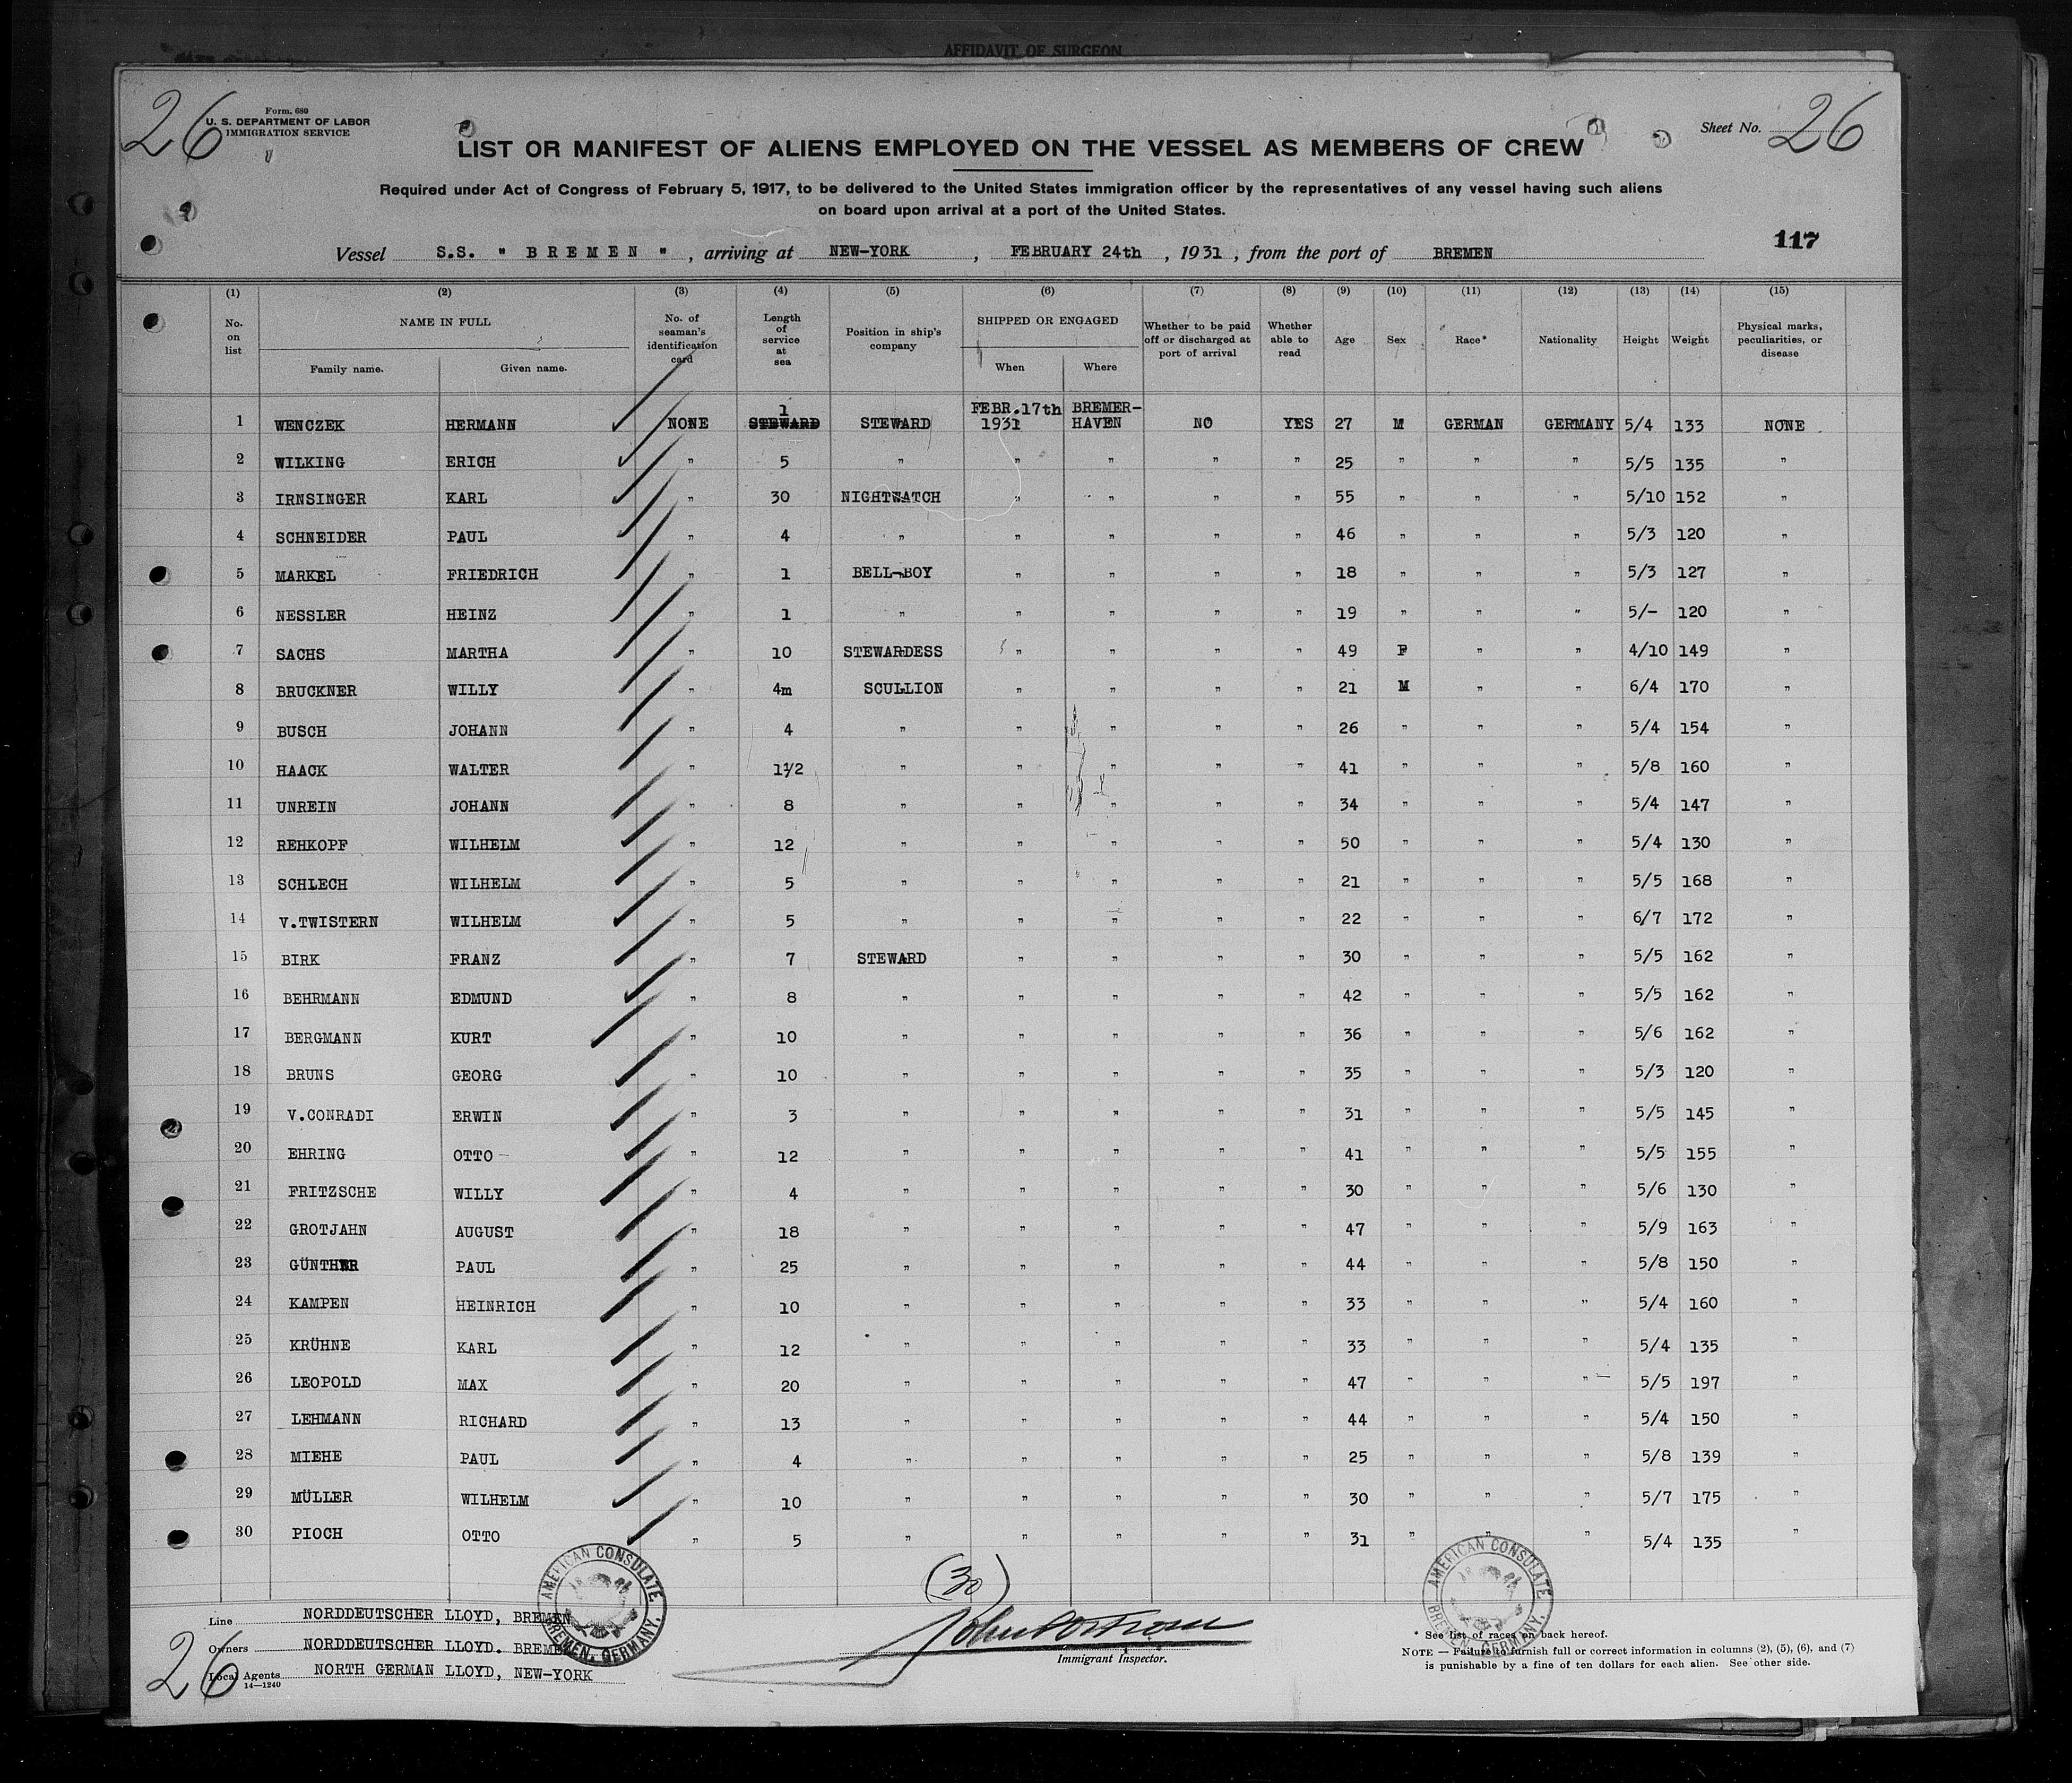 AFFIDAVIT OF SURGEON
26
Form. 680
U. S. DEPARTMENT OF LABOR
IMMIGRATION SERVICE
Sheet No. 26
LIST OR MANIFEST OF ALIENS EMPLOYED ON THE VESSEL AS MEMBERS OF CREW
Required under Act of Congress of February 5, 1917, to be delivered to the United States immigration officer by the representatives of any vessel having such aliens
on board upon arrival at a port of the United States.
117
Vessel S.S. " BREMEN ", arriving at NEW-YORK, FEBRUARY 24th, 1931, from the port of BREMEN
(1) (2) (3) (4) (5) (6) (7) (8) (9) (10) (11) (12) (13) (14) (15)
No. on list | NAME IN FULL | Family name. | Given name. | No. of seaman's identification card | Length of service at sea | Position in ship's company | SHIPPED OR ENGAGED | When | Where | Whether to be paid off or discharged at port of arrival | Whether able to read | Age | Sex | Race* | Nationality | Height | Weight | Physical marks, peculiarities, or disease
1 WENCZEK HERMANN NONE 1 STEWARD STEWARD FEBR.17th 1931 BREMER-HAVEN NO YES 27 M GERMAN GERMANY 5/4 133 NONE
2 WILKING ERICH " 5 " " " " " 25 " " " 5/5 135 "
3 IRNSINGER KARL " 30 NIGHTWATCH " " " " 55 " " " 5/10 152 "
4 SCHNEIDER PAUL " 4 " " " " " 46 " " " 5/3 120 "
5 MARKEL FRIEDRICH " 1 BELL-BOY " " " " 18 " " " 5/3 127 "
6 NESSLER HEINZ " 1 " " " " " 19 " " " 5/- 120 "
7 SACHS MARTHA " 10 STEWARDESS " " " " 49 F " " 4/10 149 "
8 BRUCKNER WILLY " 4m SCULLION " " " " 21 M " " 6/4 170 "
9 BUSCH JOHANN " 4 " " " " " 26 " " " 5/4 154 "
10 HAACK WALTER " 1½ " " " " " 41 " " " 5/8 160 "
11 UNREIN JOHANN " 8 " " " " " 34 " " " 5/4 147 "
12 REHKOPF WILHELM " 12 " " " " " 50 " " " 5/4 130 "
13 SCHLECH WILHELM " 5 " " " " " 21 " " " 5/5 168 "
14 V.TWISTERN WILHELM " 5 " " " " " 22 " " " 6/7 172 "
15 BIRK FRANZ " 7 STEWARD " " " " 30 " " " 5/5 162 "
16 BEHRMANN EDMUND " 8 " " " " " 42 " " " 5/5 162 "
17 BERGMANN KURT " 10 " " " " " 36 " " " 5/6 162 "
18 BRUNS GEORG " 10 " " " " " 35 " " " 5/3 120 "
19 V.CONRADI ERWIN " 3 " " " " " 31 " " " 5/5 145 "
20 EHRING OTTO " 12 " " " " " 41 " " " 5/5 155 "
21 FRITZSCHE WILLY " 4 " " " " " 30 " " " 5/6 130 "
22 GROTJAHN AUGUST " 18 " " " " " 47 " " " 5/9 163 "
23 GÜNTHER PAUL " 25 " " " " " 44 " " " 5/8 150 "
24 KAMPEN HEINRICH " 10 " " " " " 33 " " " 5/4 160 "
25 KRÜHNE KARL " 12 " " " " " 33 " " " 5/4 135 "
26 LEOPOLD MAX " 20 " " " " " 47 " " " 5/5 197 "
27 LEHMANN RICHARD " 13 " " " " " 44 " " " 5/4 150 "
28 MIEHE PAUL " 4 " " " " " 25 " " " 5/8 139 "
29 MÜLLER WILHELM " 10 " " " " " 30 " " " 5/7 175 "
30 PIOCH OTTO " 5 " " " " " 31 " " " 5/4 135 "
(30)
AMERICAN CONSULATE BREMEN, GERMANY.
AMERICAN CONSULATE BREMEN, GERMANY.
Line NORDDEUTSCHER LLOYD, BREMEN
Owners NORDDEUTSCHER LLOYD. BREMEN
Local Agents NORTH GERMAN LLOYD, NEW-YORK
14—1240
26
Immigrant Inspector.
* See list of races on back hereof.
NOTE — Failure to furnish full or correct information in columns (2), (5), (6), and (7)
is punishable by a fine of ten dollars for each alien. See other side.